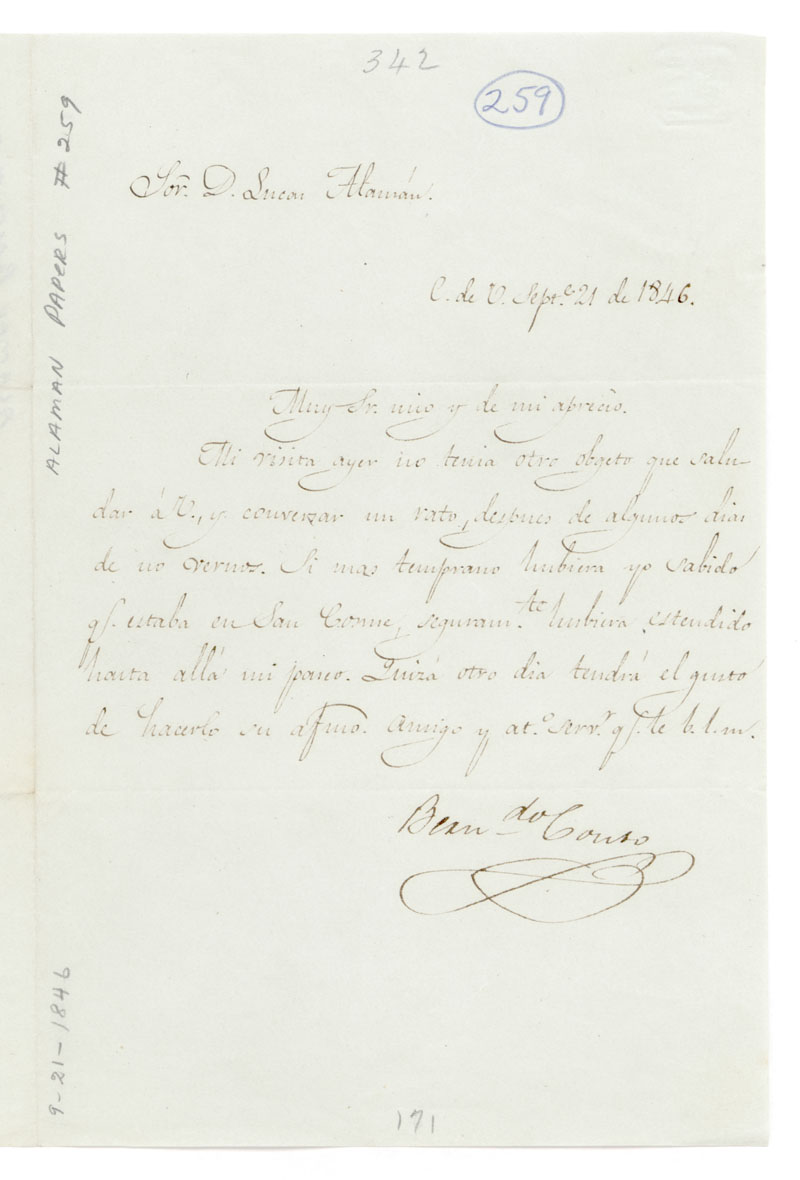 342
259
Sor. D. Lucas Alamán.
C. de V. Septe. 21 de 1846.
Muy Sr. mio y de mi aprecio.
Mi visita ayer no tenia otro obgeto que salu-
dar á V., y conversar un rato, despues de algunos dias
de no vernos. Si mas temprano hubiera yo sabido
q. estaba en San Cosme, seguramte. hubiera estendido
hasta allá mi paseo. Quizá otro dia tendrá el gusto
de hacerlo su afmo. amigo y ato. servr. q. le b. l. m.
Berndo Couto
171
ALAMAN PAPERS # 259
9-21-1846